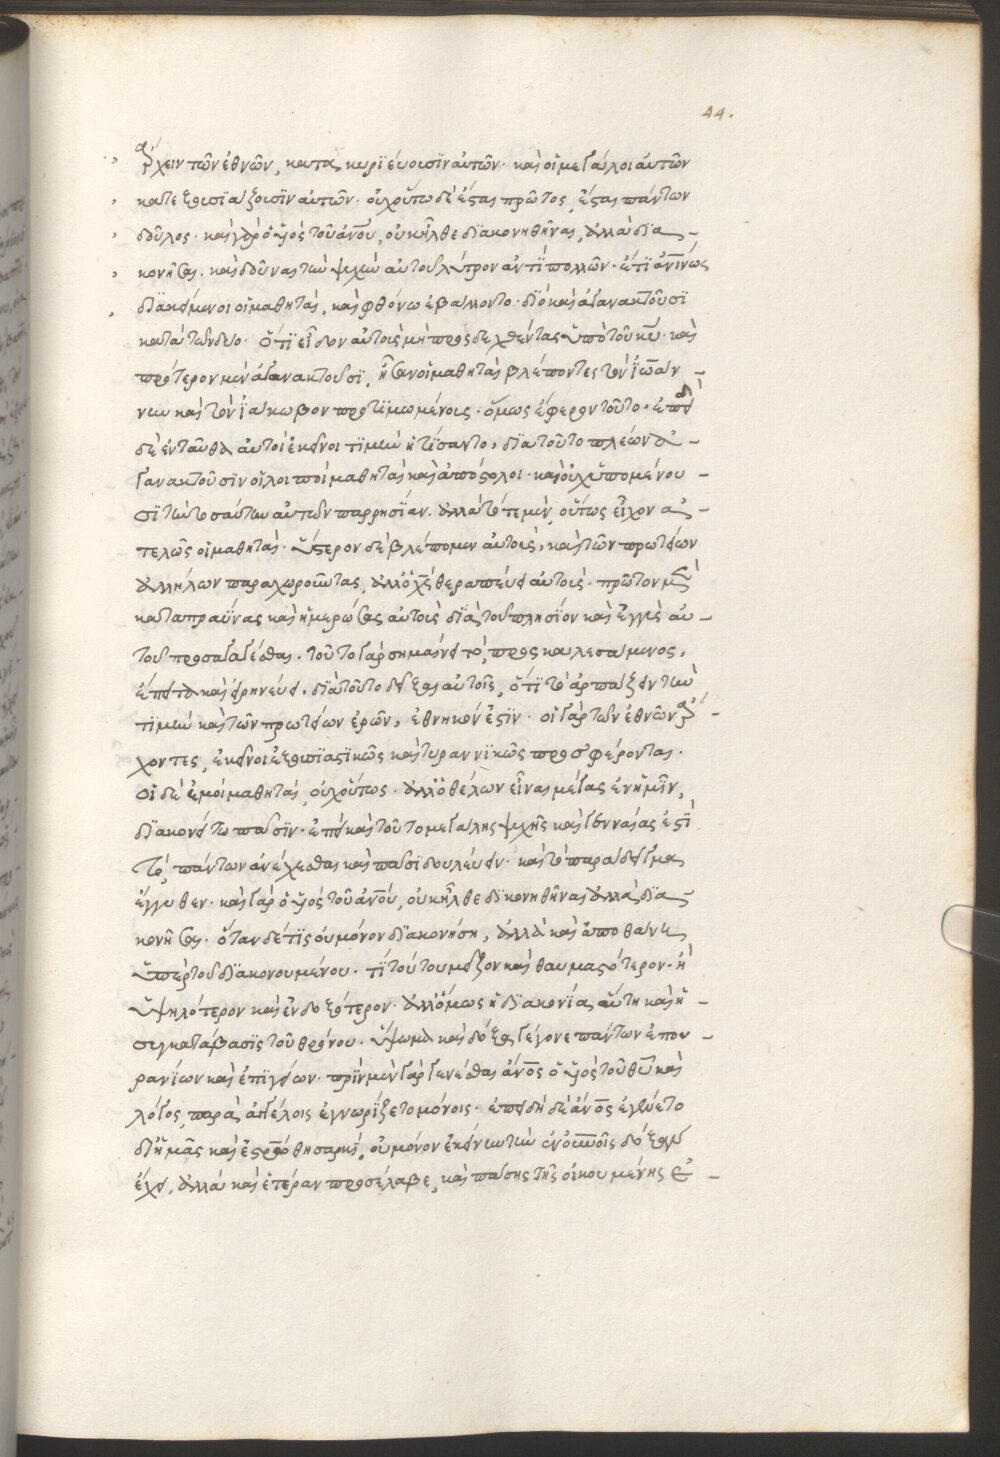 44.
ἄρχειν τῶν ἐθνῶν, κατακυριεύουσϊν αὐτῶν· καὶ οἱ μεγάλοι αὐτῶν
κατεξουσϊάζουσϊν αὐτῶν· οὐχ οὕτω δὲ ἔσται πρῶτος ἔσται πάντων
δοῦλος· καὶ γὰρ ὁ υἱὸς τοῦ ἀνου, οὐκ ἦλθε δϊακονηθῆναι, ἀλλὰ δϊα–
κονῆσαι· καὶ δοῦναι τὴν ψυχὴν αὐτοῦ λύτρον ἀντὶ πολλῶν· ἔτϊ
δϊακείμενοι οἱ μαθηταὶ, καὶ φθόνω ἐβάλλοντο· δϊὸ καὶ ἀγανακτοῦσϊ
κατὰ τῶν δύο· ὅτϊ εἶδον αὐτοὺς μὴ προσδεχθέντας ὑπὸ τοῦ κυ· καὶ
πρότερον μὲν ἀγανακτοῦσϊ, ἦσαν οἱ μαθηταὶ βλέποντες τὸν ϊωάν–
νην καὶ τὸν ϊάκωβον προτϊμωμένους· ὅμως ἔφερον τοῦτο· ἐπεὶ
δὲ ἐνταῦθα αὐτοὶ ἐκεῖνοι τϊμὴν ἠτήσαντο, δϊατοῦτο πλέων ἀ–
γανακτοῦσϊν οἱ λοιποὶ μαθηταὶ καὶ ἀπόστολοι· καὶ οὐχ ὑπομένου–
σϊ τὴν τοσαύτην αὐτῶν παρρησϊάν· ἀλλὰ τότε μὲν, οὕτως εἶχον ἀ–
τελῶς οἱ μαθηταὶ· ὕστερον δὲ βλέπομεν αὐτοὺς, καὶ τῶν πρωτείων
ἀλλήλων παραχωροῦντας, ἀλλ' ὁ χς θεραπεύει αὐτοὺς· πρῶτον μὲν
καταπραΰνας καὶ ἡμερώσας αὐτοὺς δϊὰ τοῦ πλησϊόν καὶ ἐγγὺς αὐ–
τοῦ προσαγαγέσθαι· τοῦτο γὰρ σημαίνει τὸ, προσκαλεσάμενος,
ἔπειτα καὶ εἰρηνεύει, δϊατοῦτο δείξας αὐτοῖς, ὅτϊ τὸ ἁρπάζειν τὴν
τϊμὴν καὶ τῶν πρωτείων ἐρῶν, ἐθνηκόν ἐστϊν· οἱ γὰρ τῶν ἐθνῶν ἄρ–
χοντες, ἐκεῖνοι ἐξουσϊαστϊκῶς καὶ τυραννϊκῶς προσφέρονται·
οἱ δὲ ἐμοὶ μαθηταὶ, οὐχ οὕτως· ἀλλ' ὁ θέλων εἶναι μέγας ἐν ἡμῖν,
δϊακονείτω πᾶσϊν· ἐπεὶ καὶ τοῦτο μεγάλης ψυχῆς καὶ γενναίας ἐστϊ
τὸ, πάντων ἀνέχεσθαι καὶ πᾶσϊ δουλεύειν· καὶ τὸ παράδειγμα
ἔγγυθεν· καὶ γὰρ ὁ υἱὸς τοῦ ἀνου, οὐκ ἦλθε δϊκονηθῆναι ἀλλὰ δϊα–
κονῆσαι· ὅταν δέ τϊς οὐ μόνον δϊακονήση, ἀλλὰ καὶ ἀποθαίνει
ὑπὲρ τοῦ δϊακονουμένου· τί τούτου μεῖζον καὶ θαυμαστότερον· ἢ
ὑψηλότερον καὶ ἐνδοξότερον· ἀλλ' ὅμως ἡ δϊακονία αὕτη καὶ ἡ–
συγκατάβασϊς τοῦ θρόνου· ὕψωμα καὶ δόξα γέγονε πάντων ἐπου–
ρανίων καὶ ἐπϊγείων· πρὶν μὲν γὰρ γενέσθαι ἄνος ὁ υἱὸς τοῦ θυ καὶ
λόγος, παρὰ ἀγγέλοις ἐγνωρίζετο μόνοις· ἐπειδὴ δὲ ἄνος ἐγένετο
δϊ' ἡμᾶς καὶ ἐστρώθη σαρκϊ, οὐ μόνον ἐκείνην τὴν ἐν οὐνοῖς δόξαν
ἔχει, ἀλλὰ καὶ ἑτέραν προσέλαβε, καὶ πάσης τῆς οἰκουμένης ἐ–